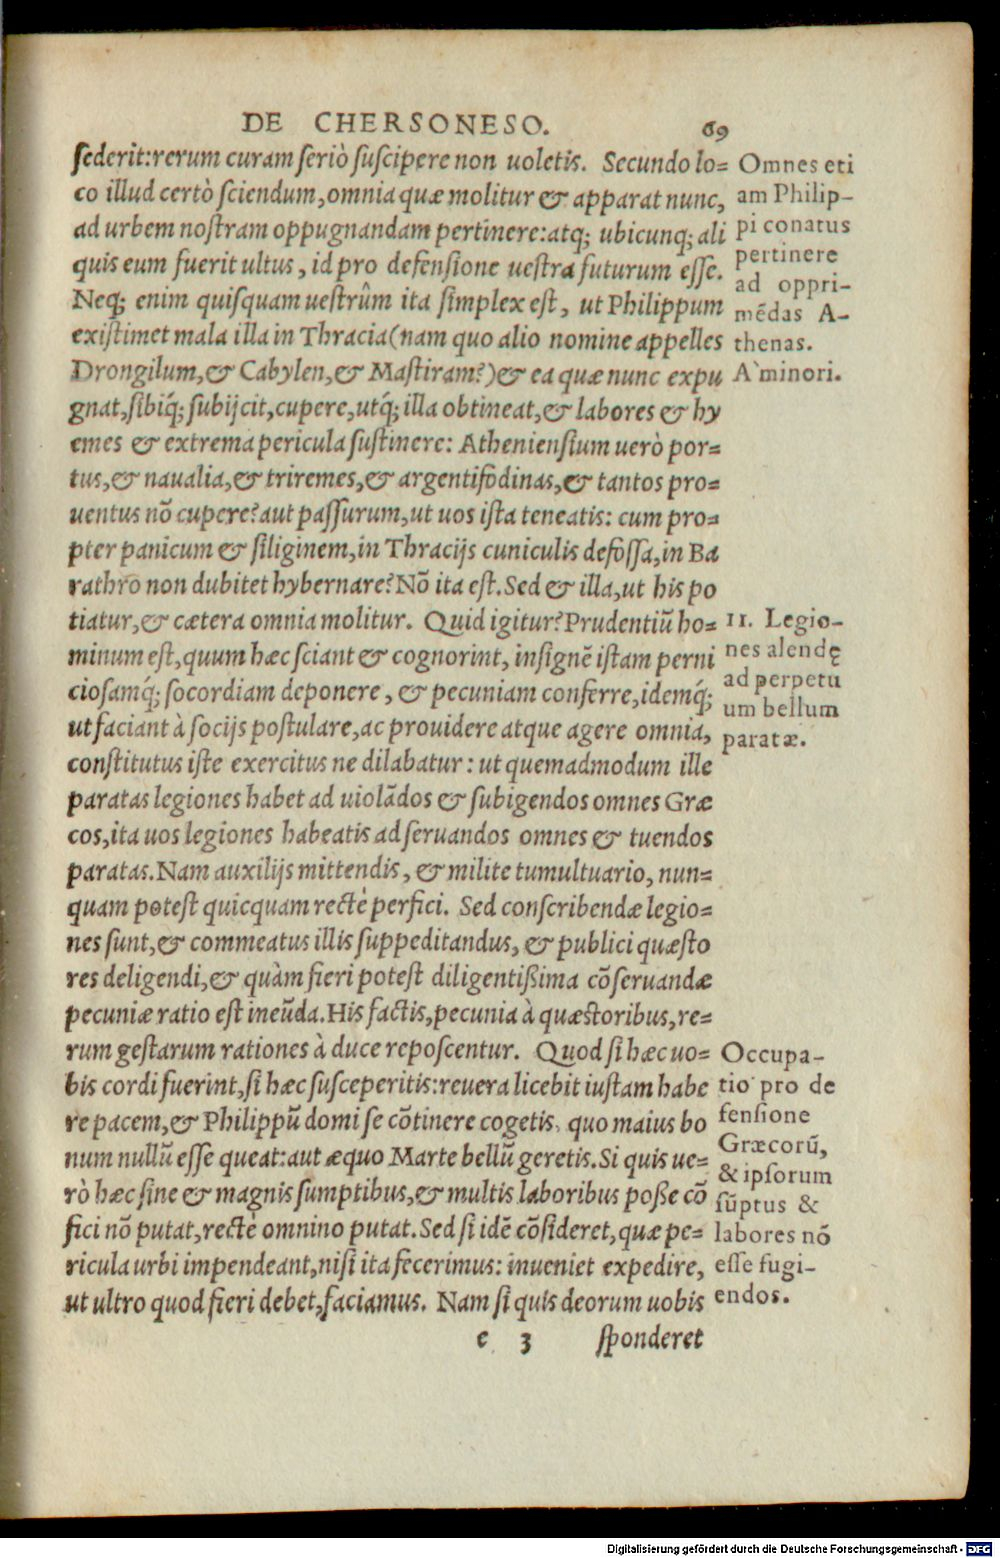 DE CHERSONESO. 69
sederit:rerum curam seriò suscipere non uoletis. Secundo lo=
co illud certò sciendum,omnia quæ molitur & apparat nunc,
ad urbem nostram oppugnandam pertinere:atq; ubicunq; ali
quis eum fuerit ultus, id pro defensione uestra futurum esse.
Neq; enim quisquam uestrûm ita simplex est, ut Philippum
existimet mala illa in Thracia(nam quo alio nomine appelles
Drongilum,& Cabylen,& Mastiram?)& ea quæ nunc expu
gnat,sibiq́; subijcit,cupere,utq́; illa obtineat,& labores & hy
emes & extrema pericula sustinere: Atheniensium uerò por=
tus,& naualia,& triremes,& argentifodinas,& tantos pro=
uentus nō cupere?aut passurum,ut uos ista teneatis: cum pro=
pter panicum & siliginem,in Thracijs cuniculis defossa,in Ba
rathro non dubitet hybernare?Nō ita est.Sed & illa,ut his po
tiatur,& cætera omnia molitur. Quid igitur?Prudentiū ho=
minum est,quum hæc sciant & cognorint, insignē istam perni
ciosamq́; socordiam deponere, & pecuniam conferre,idemq́;
ut faciant à socijs postulare,ac prouidere atque agere omnia,
constitutus iste exercitus ne dilabatur: ut quemadmodum ille
paratas legiones habet ad uiolādos & subigendos omnes Græ
cos,ita uos legiones habeatis ad seruandos omnes & tuendos
paratas.Nam auxilijs mittendis, & milite tumultuario, nun=
quam potest quicquam rectè perfici. Sed conscribendæ legio=
nes sunt,& commeatus illis suppeditandus, & publici quæsto
res deligendi,& quàm fieri potest diligentißima cōseruandæ
pecuniæ ratio est ineūda.His factis,pecunia à quæstoribus,re=
rum gestarum rationes à duce reposcentur. Quod si hæc uo=
bis cordi fuerint,si hæc susceperitis:reuera licebit iustam habe
re pacem,& Philippū domi se cōtinere cogetis, quo maius bo
num nullū esse queat:aut æquo Marte bellū geretis.Si quis ue=
rò hæc sine & magnis sumptibus,& multis laboribus poße cō
fici nō putat,rectè omnino putat.Sed si idē cōsideret,quæ pe=
ricula urbi impendeant,nisi ita fecerimus: inueniet expedire,
ut ultro quod fieri debet,faciamus. Nam si quis deorum uobis
e 3 sponderet
Omnes eti
am Philip-
pi conatus
pertinere
ad oppri-
mēdas A-
thenas.
A`minori.
11. Legio-
nes alendę
ad perpetu
um bellum
paratæ.
Occupa-
tio pro de
fensione
Græcorū,
& ipsorum
sūptus &
labores nō
esse fugi-
endos.
Digitalisierung gefördert durch die Deutsche Forschungsgemeinschaft - DFG